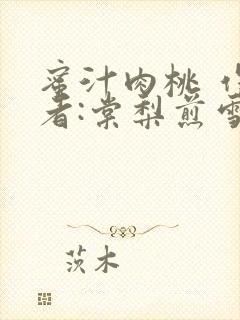 蜜汁肉桃 作
者:棠梨煎雪
茨木